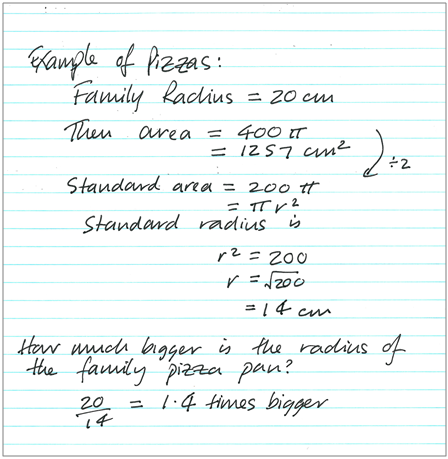 Example of Pizzas:
Family Radius = 20 cm
Then area = 400 π
= 1257 cm²
÷2
Standard area = 200 π
= π r²
Standard radius is
r² = 200
r = √200
= 14 cm
How much bigger is the radius of
the family pizza pan?
20/14 = 1.4 times bigger